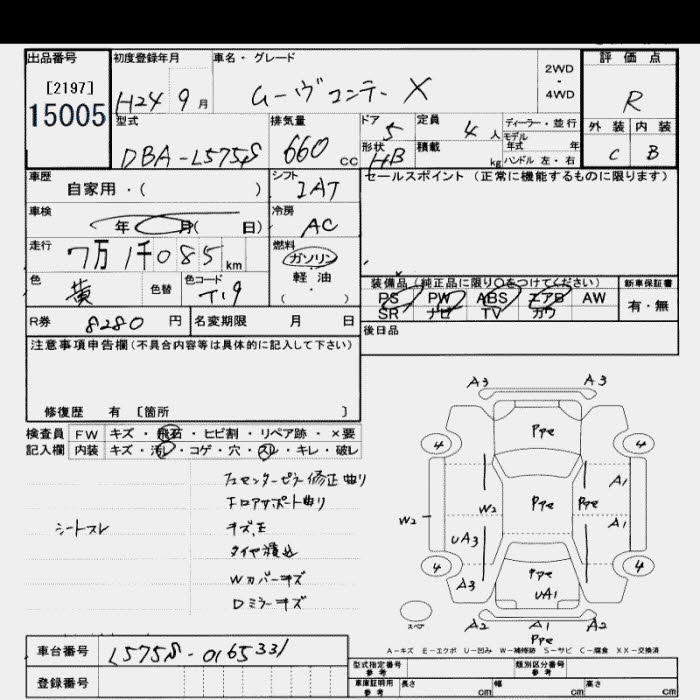 出品番号
[2197]
15005
初度登録年月
H24 9月
車名・グレード
ムーヴコンテ X
2WD
・
4WD
評価点
R
型式
DBA-L575S
排気量
660 cc
ドア 5
形状 HB
定員 4 人
積載 kg
ディーラー・並行
モデル
年式 年
ハンドル 左・右
外装 内装
C B
車歴
自家用・( )
シフト
IAT
セールスポイント (正常に機能するものに限ります)
車検
年 月( 日)
冷房
AC
走行
7万1千085 km
燃料
ガソリン
軽・油
( )
色
黄
色替
色コード
T-9
装備品(純正品に限り○をつけてください)
PS PW ABS エアB AW
SR ナビ TV カワ
新車保証書
有・無
R券 8280 円
名変期限 月 日
後日品
注意事項申告欄(不具合内容等は具体的に記入して下さい)
修復歴 有 [箇所 ]
検査員 FW キズ・飛石・ヒビ割・リペア跡・×要
記入欄 内装 キズ・汚レ・コゲ・穴・スレ・キレ・破レ
シートスレ
フェンターピラー修正曲り
ドロアサポート曲り
キズ,E
タイヤ積込
Wカバーキズ
Dミラーキズ
A3 A3
PPe
4 4
A1
W2 PPe PPe
W2 A1
UA3
4 4
A3
PPe
UA1
スペア
A2 A1 A2
PPe
A-キズ E-エクボ U-凹み W-補修跡 S-サビ C-腐食 XX-交換済
車台番号 L575S-0165331
登録番号
型式指定番号
参考
類別区分番号
参考
車庫証明用
参考
長さ cm 幅 cm 高さ cm